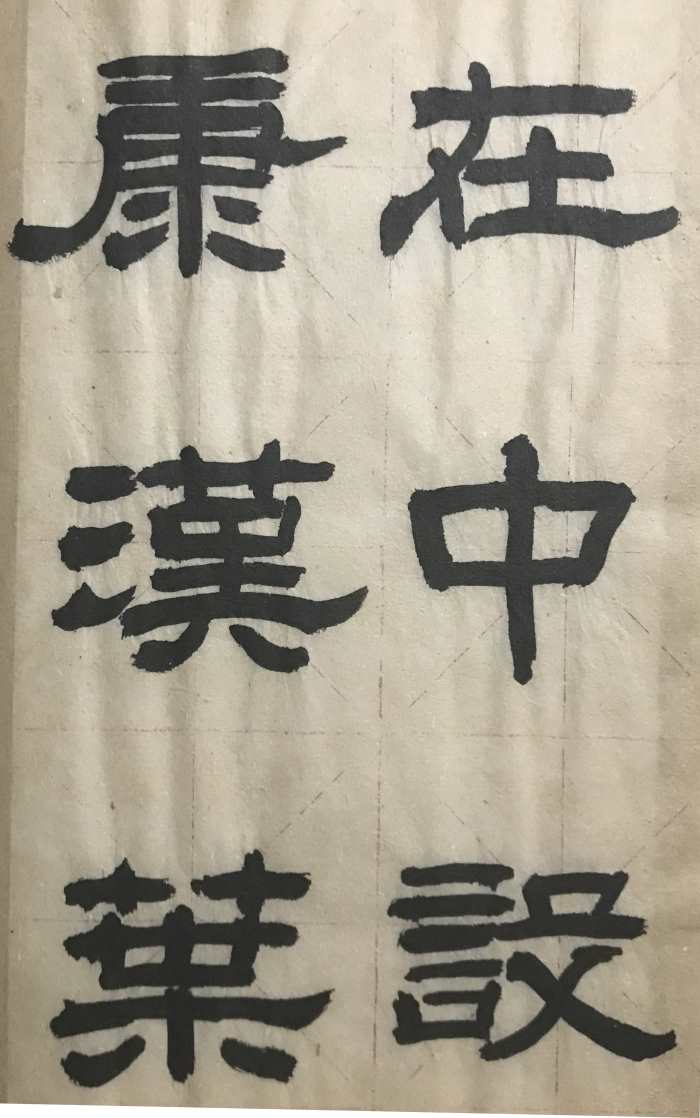 在中設
康漢葉